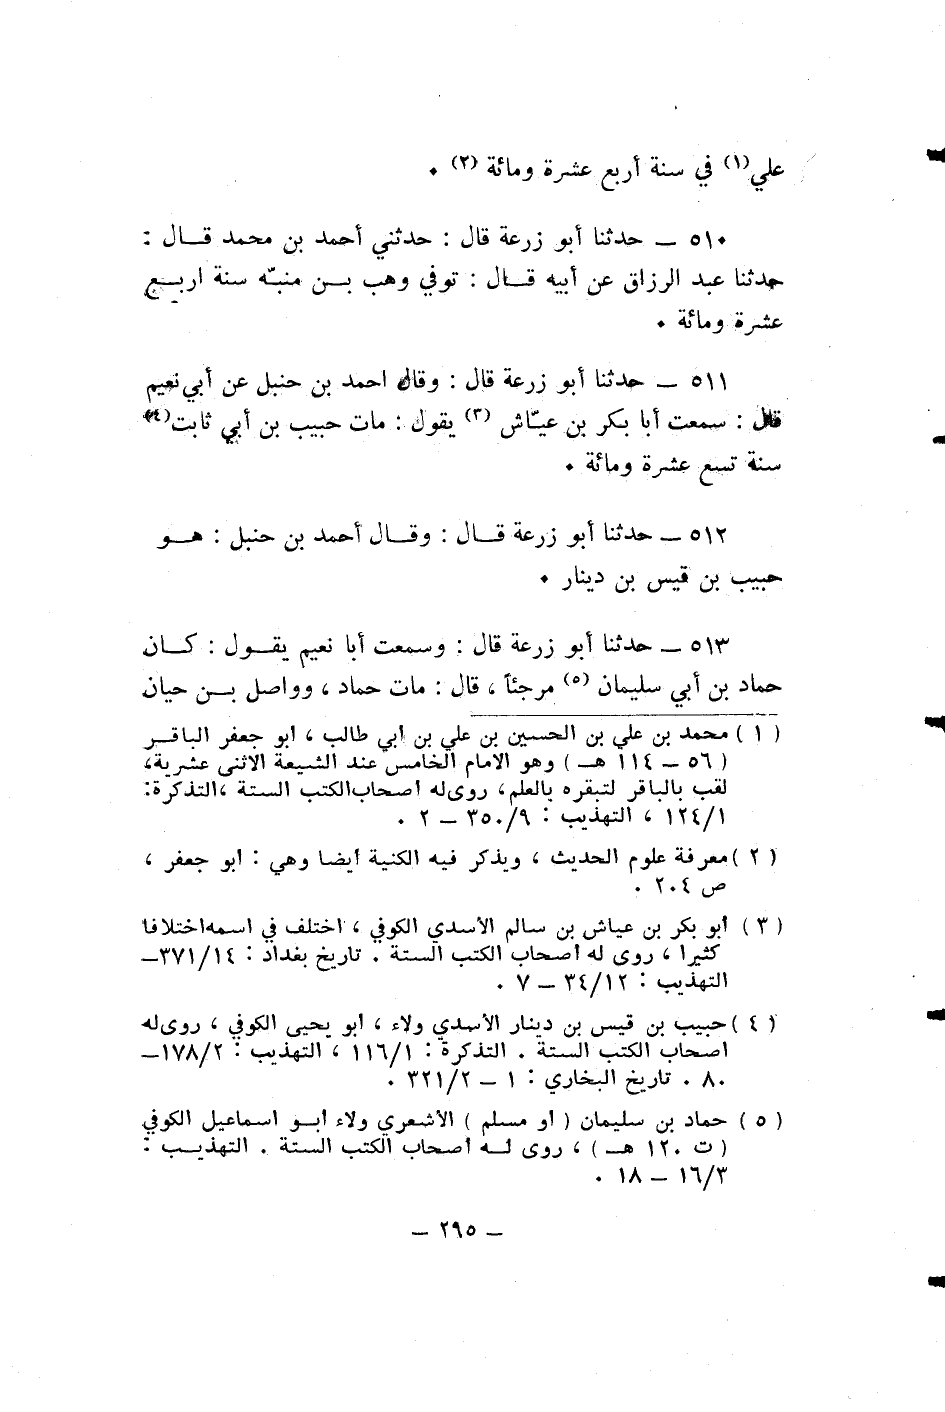 علي(١) في سنة أربع عشرة ومائة (٢) .
٥١٠ ــ حدثنا أبو زرعة قال : حدثني أحمد بن محمد قــال :
حدثنا عبد الرزاق عن أبيه قــال : توفي وهب بــن منبّه سنة اربــع
عشرة ومائة .
٥١١ ــ حدثنا أبو زرعة قال : وقال احمد بن حنبل عن أبي نعيم
قال : سمعت أبا بكر بن عيّاش (٣) يقول : مات حبيب بن أبي ثابت(٤)
سنة تسع عشرة ومائة .
٥١٢ ــ حدثنا أبو زرعة قــال : وقــال أحمد بن حنبل : هــو
حبيب بن قيس بن دينار .
٥١٣ ــ حدثنا أبو زرعة قال : وسمعت أبا نعيم يقــول : كــان
حماد بن أبي سليمان (٥) مرجئاً ، قال : مات حماد ، وواصل بــن حيان
( ١ ) محمد بن علي بن الحسين بن علي بن ابي طالب ، ابو جعفر الباقــر
( ٥٦ ــ ١١٤ هــ ) وهو الامام الخامس عند الشيعة الاثنى عشرية،
لقب بالباقر لتبقره بالعلم، روى له اصحاب الكتب الستة ،التذكرة:
١٢٤/١ ، التهذيب : ٣٥٠/٩ ــ ٢ .
( ٢ )معرفة علوم الحديث ، ويذكر فيه الكنية ايضا وهي : ابو جعفر ،
ص ٢٠٤ .
( ٣ ) أبو بكر بن عياش بن سالم الأسدي الكوفي ، اختلف في اسمه اختلافا
كثيرا ، روى له اصحاب الكتب الستة . تاريخ بغداد : ٣٧١/١٤ــ
التهذيب : ٣٤/١٢ ــ ٧ .
( ٤ )حبيب بن قيس بن دينار الأسدي ولاء ، ابو يحيى الكوفي ، روى له
اصحاب الكتب الستة . التذكرة : ١١٦/١ ، التهذيب : ١٧٨/٢ــ
٨٠ . تاريخ البخاري : ١ ــ ٣٢١/٢ .
( ٥ ) حماد بن سليمان ( او مسلم ) الأشعري ولاء ابــو اسماعيل الكوفي
( ت ١٢٠ هــ ) ، روى لــه اصحاب الكتب الستة . التهذيــب :
١٦/٣ ــ ١٨ .
ــ ٢٩٥ ــ